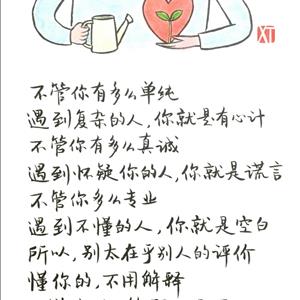 不管你有多么单纯
遇到复杂的人,你就是有心计
不管你有多么真诚
遇到怀疑你的人,你就是谎言
不管你多么专业
遇到不懂的人,你就是空白
所以,别太在乎别人的评价
懂你的,不用解释